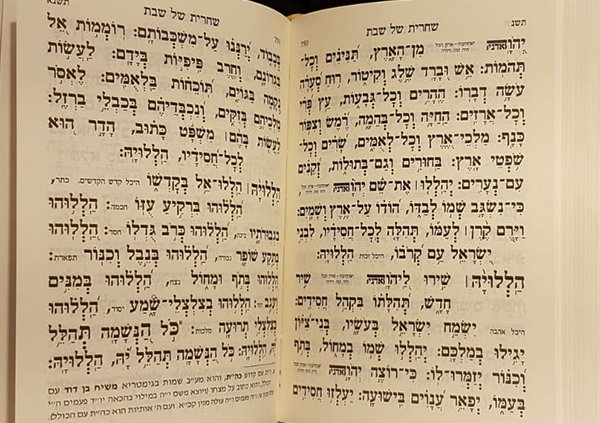 שחרית של שבת תשנ
יְהֹוָה מִן־הָאָרֶץ, תַּנִּינִים וְכׇל־
תְּהֹמוֹת: אֵשׁ וּבָרָד שֶׁלֶג וְקִיטוֹר, רוּחַ סְעָרָה
עֹשָׂה דְבָרוֹ: הֶהָרִים וְכׇל־גְּבָעוֹת, עֵץ פְּרִי
וְכׇל־אֲרָזִים: הַחַיָּה וְכׇל־בְּהֵמָה, רֶמֶשׂ וְצִפּוֹר
כָּנָף: מַלְכֵי־אֶרֶץ וְכׇל־לְאֻמִּים, שָׂרִים וְכׇל־
שֹׁפְטֵי אָרֶץ: בַּחוּרִים וְגַם־בְּתוּלוֹת, זְקֵנִים
עִם־נְעָרִים: יְהַלְלוּ אֶת־שֵׁם יְהֹוָה
כִּי־נִשְׂגָּב שְׁמוֹ לְבַדּוֹ, הוֹדוֹ עַל־אֶרֶץ וְשָׁמָיִם:
וַיָּרֶם קֶרֶן לְעַמּוֹ, תְּהִלָּה לְכׇל־חֲסִידָיו, לִבְנֵי
יִשְׂרָאֵל עַם קְרֹבוֹ, היכל זכות הַלְלוּיָהּ:
הַלְלוּיָהּ שִׁירוּ לַיהֹוָה שִׁיר
חָדָשׁ, תְּהִלָּתוֹ בִּקְהַל חֲסִידִים:
היכל אהבה יִשְׂמַח יִשְׂרָאֵל בְּעֹשָׂיו, בְּנֵי־צִיּוֹן
יָגִילוּ בְמַלְכָּם: יְהַלְלוּ שְׁמוֹ בְמָחוֹל, בְּתֹף
וְכִנּוֹר יְזַמְּרוּ־לוֹ: כִּי־רוֹצֶה יְהֹוָה
בְּעַמּוֹ, יְפָאֵר עֲנָוִים בִּישׁוּעָה: יַעְלְזוּ חֲסִידִים
שחרית של שבת תשנא
בְּכָבוֹד, יְרַנְּנוּ עַל־מִשְׁכְּבוֹתָם: רוֹמְמוֹת אֵל
בִּגְרוֹנָם, וְחֶרֶב פִּיפִיּוֹת בְּיָדָם: לַעֲשׂוֹת
נְקָמָה בַּגּוֹיִם, תּוֹכֵחוֹת בַּלְאֻמִּים: לֶאְסֹר
מַלְכֵיהֶם בְּזִקִּים, וְנִכְבְּדֵיהֶם בְּכַבְלֵי בַרְזֶל:
לַעֲשׂוֹת בָּהֶם מִשְׁפָּט כָּתוּב, הָדָר הוּא
לְכׇל־חֲסִידָיו, הַלְלוּיָהּ:
הַלְלוּיָהּ הַלְלוּ־אֵל בְּקׇדְשׁוֹ היכל קדש הקדשים. כתר,
הַלְלוּהוּ בִּרְקִיעַ עֻזּוֹ חכמה: הַלְלוּהוּ
בִגְבוּרֹתָיו בינה, הַלְלוּהוּ כְּרֹב גֻּדְלוֹ חסד: הַלְלוּהוּ
בְּתֵקַע שׁוֹפָר גבורה, הַלְלוּהוּ בְּנֵבֶל וְכִנּוֹר תפארת:
הַלְלוּהוּ בְתֹף וּמָחוֹל נצח, הַלְלוּהוּ בְּמִנִּים
וְעֻגָב הוד: הַלְלוּהוּ בְצִלְצְלֵי־שָׁמַע יסוד, הַלְלוּהוּ
בְּצִלְצְלֵי תְרוּעָה מלכות: כֹּל הַנְּשָׁמָה תְּהַלֵּל
יָהּ, הַלְלוּיָהּ: כֹּל הַנְּשָׁמָה תְּהַלֵּל יָהּ, הַלְלוּיָהּ:
שם קדש כה״ת, והוא מע״ב שמות בגימטריא משיח בן דוד עם